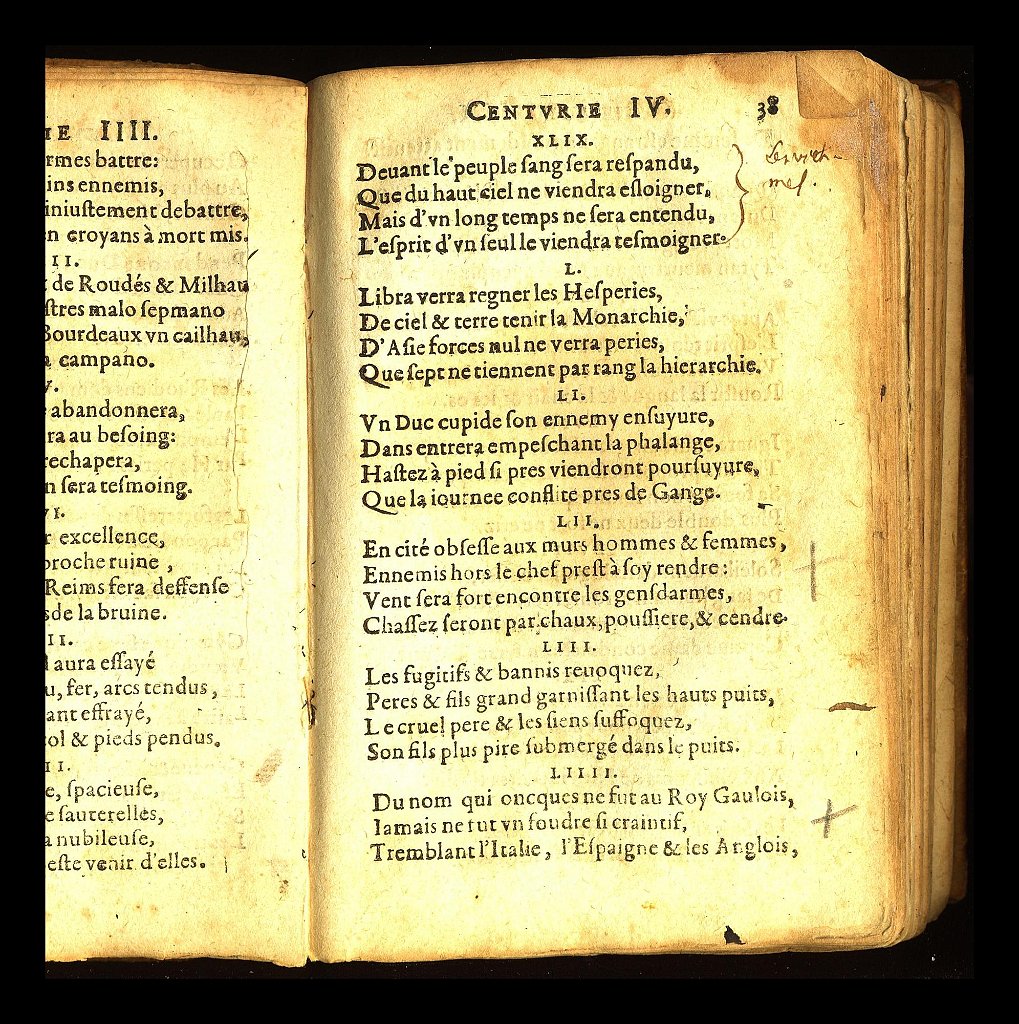 IE IIII.
rmes battre:
ins ennemis,
iniuſtement debattre,
n croyans à mort mis.
II.
de Roudés & Milhau
ſtres malo ſepmano
Bourdeaux vn cailhau,
campano.
V.
abandonnera,
ra au beſoing:
rechapera,
n ſera teſmoing.
VI.
r excellence,
proche ruine ,
Reims fera deffenſe
sde la bruine.
II.
l aura eſſayé
u, fer, arcs tendus ,
ant effrayé,
col & pieds pendus.
II.
e, ſpacieuſe,
e ſauterelles,
a nubileuſe,
eſte venir d'elles.
CENTVRIE IV. 38
XLIX.
Deuant le peuple ſang ſera reſpandu,
Que du haut ciel ne viendra eſloigner,
Mais d'vn long temps ne ſera entendu,
L'eſprit d'vn ſeul le viendra teſmoigner.
L.
Libra verra regner les Heſperies,
De ciel & terre tenir la Monarchie,
D'Aſie forces nul ne verra peries,
Que ſept ne tiennent par rang la hierarchie.
LI.
Vn Duc cupide ſon ennemy enſuyure,
Dans entrera empeſchant la phalange,
Haſtez à pied ſi pres viendront pourſuyure,
Que la iournee conflite pres de Gange.
LII.
En cité obſeſſe aux murs hommes & femmes,
Ennemis hors le chef preſt à ſoy rendre:
Vent ſera fort encontre les genſdarmes,
Chaſſez ſeront par chaux, pouſſiere, & cendre.
LIII.
Les fugitifs & bannis reuoquez,
Peres & fils grand garniſſant les hauts puits,
Le cruel pere & les ſiens ſuffoquez,
Son fils plus pire ſubmergé dans le puits.
LIIII.
Du nom qui oncques ne fut au Roy Gaulois,
Iamais ne fut vn foudre ſi craintif,
Tremblant l'Italie, l'Eſpaigne & les Anglois,